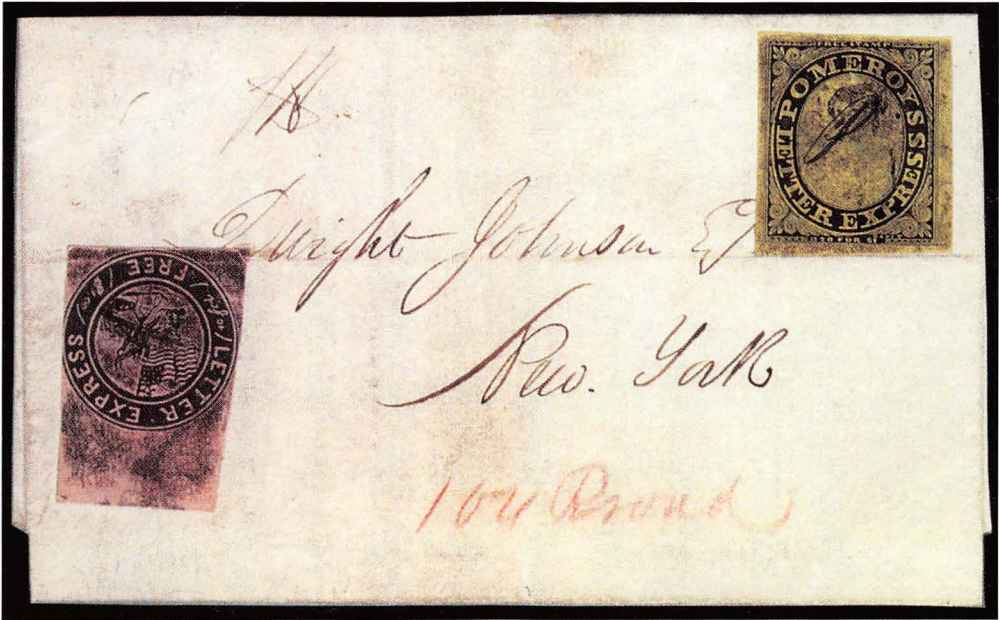 FREE STAMP
POMEROY'S LETTER EXPRESS
20 FOR $1
Dwight Johnson Esq
FREE
LETTER EXPRESS
New. York
104 Broad